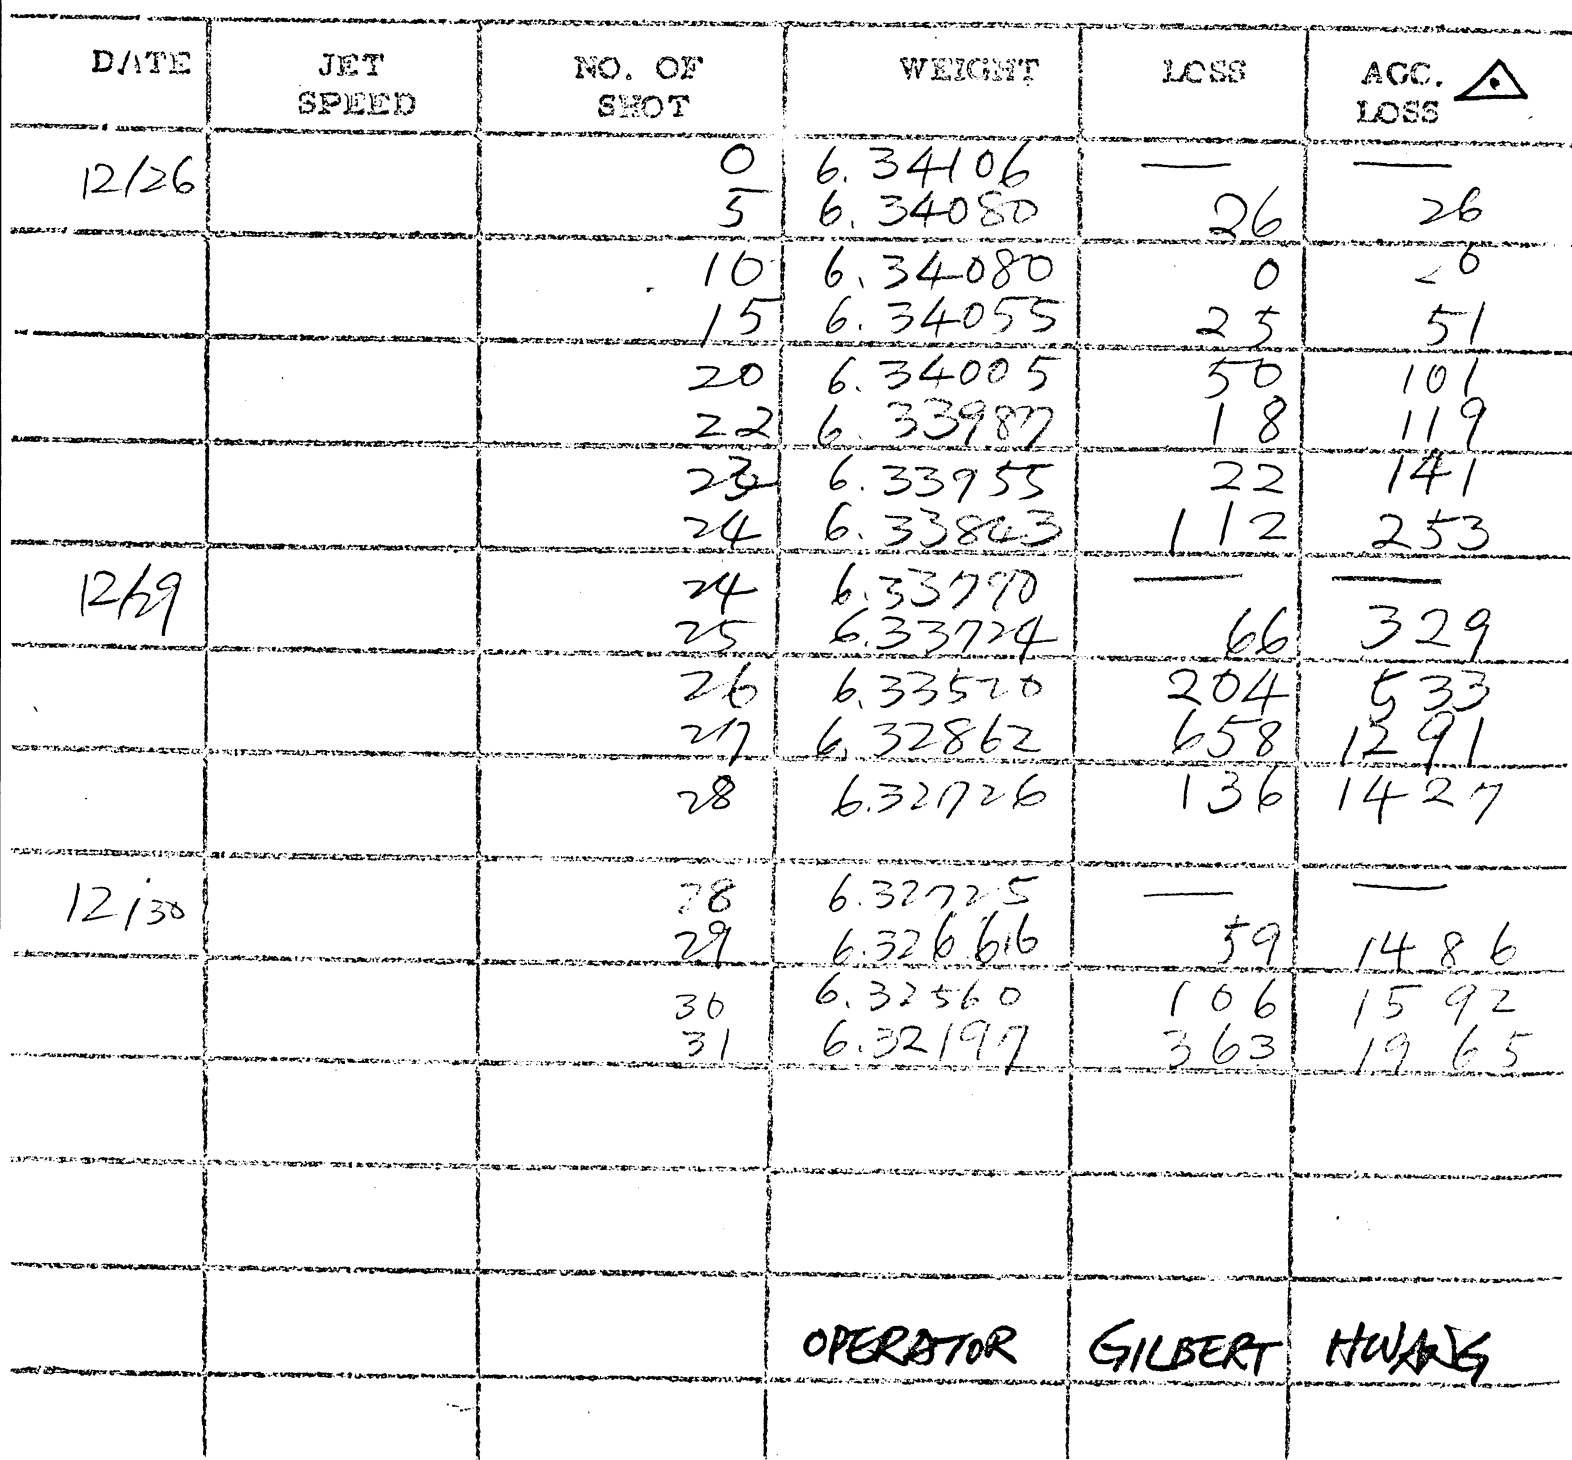 DATE JET SPEED NO. OF SHOT WEIGHT LOSS ACC. LOSS
12/26 0 6.34106 — —
5 6.34080 26 26
10 6.34080 0
15 6.34055 25 51
20 6.34005 50 101
22 6.33987 18 119
23 6.33955 22 141
24 6.33843 112 253
12/29 24 6.33790 — —
25 6.33724 66 329
26 6.33520 204 533
27 6.32862 658 1291
28 6.32726 136 1427
12/30 28 6.32725 — —
29 6.32666 59 1486
30 6.32560 106 1592
31 6.32197 363 1965
OPERATOR GILBERT HWANG